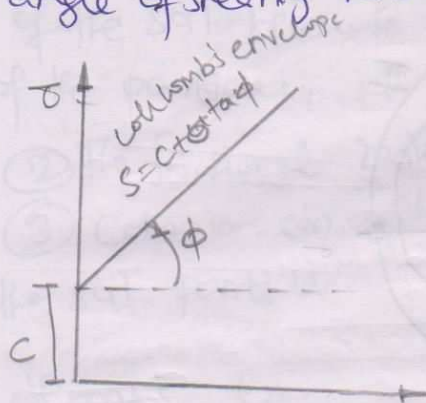 angle of shearing
τ
Coulomb's envelope
S = C + σ tan ϕ
ϕ
C